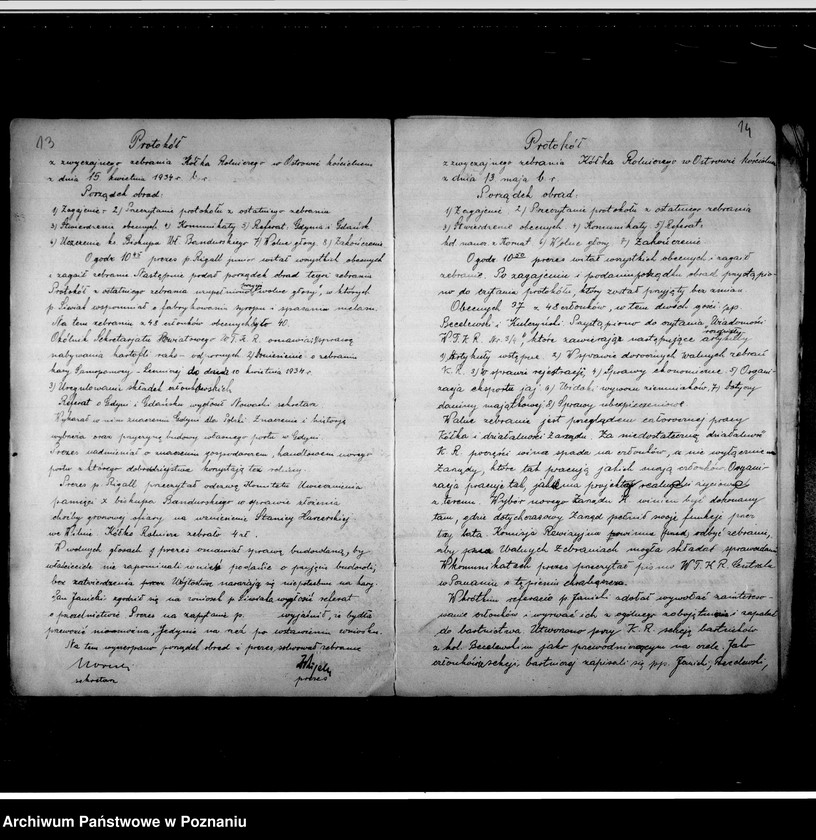 13
Protokół
z zwyczajnego zebrania Kółka Rolniczego w Ostrowie kościelnem
z dnia 15 kwietnia 1934 r. b. r.
Porządek obrad:
1) Zagajenie 2) Przeczytanie protokołu z ostatniego zebrania
3) Stwierdzenie obecnych 4) Komunikaty 5) Referat: Gdynia i Gdańsk
6) Uczczenie ks. Biskupa Wł. Bandurskiego 7) Wolne głosy 8) Zakończenie
O godz 10 45 prezes p. Rigall junior witał wszystkich obecnych
i zagaił zebranie. Następnie podał porządek obrad tegoż zebrania
Protokół z ostatniego zebrania wolne głosy, w których
p. Siwiak wspominał o fabrykowaniu syropu i
Na tem zebraniu z 48 członków obecnych było 40.
Okólnik Sekretarjatu Powiatowego W.T.K.R. omawiał sprawę
nabywania kartofli rako-odpornych 2) Doniesienie o zebraniu
10 kwietnia 1934 r.
3) Uregulowanie składek członkowskich
Referat o Gdyni i Gdańsku wygłosił Nowicki sekretarz
Wykazał w nim znaczenie Gdyni dla Polski. Znaczenie i historję
wybrzeża oraz przyczynę budowy własnego portu w Gdyni.
Prezes nadmieniał o znaczeniu gospodarczem, handlowem nowego
portu z którego dobrodziejstwa korzystają też rolnicy.
Prezes p. Rigall przeczytał odezwę Komitetu Uwiecznienia
pamięci x biskupa Bandurskiego w sprawie złożenia
choćby groszowej ofiary na wzniesienie Stanicy Harcerskiej
we Wilnie. Kółko Rolnicze zebrało 4 zł.
W wolnych głosach prezes omawiał sprawę budowlaną, by
właściciele nie zapominali wnieść podanie o przyjęcie budowli,
bez zatwierdzenia przez Wydział narażają się niepotrzebnie na kary.
Pan Janicki zgodził się na wniosek p. Siwiaka wygłosić referat
o pszczelnictwie Prezes na zapytanie p. wyjaśnił, iż będzie
Jedynie na rżeć po wstawieniu wniosku.
Na tem wyczerpano porządek obrad i prezes solwował zebranie
Nowicki
sekretarz
prezes
14
Protokół
z zwyczajnego zebrania Kółka Rolniczego w Ostrowie kościelnem
z dnia 13. maja b. r.
Porządek obrad:
1) Zagajenie 2) Przeczytanie protokołu z ostatniego zebrania
3) Stwierdzenie obecnych 4) Komunikaty 5) Referat:
6) Wolne głosy 7) Zakończenie
O godz 10 prezes witał wszystkich obecnych i zagaił
zebranie. Po zagajeniu i podaniu porządku obrad przystąpio-
no do czytania protokółu, który został przyjęty bez zmian
Obecnych 37 z 48 członków, w tem dwóch gości: pp.
Becelewski i Kulczyński. Przystąpiono do czytania „Wiadomości
W.T.K.R. Nr. 3/4", które zawierając następujące artykuły
1) Artykuły wstępne. 2) W sprawie dorocznych walnych zebrań
K.R. 3) W sprawie rejestracji, 4) Sprawy ekonomiczne. 5) Organi-
zacja eksportu jaj. 6) Widoki wywozu ziemniaków. 7)
daniny majątkowej 8) Sprawy ubezpieczeniowe
Walne zebranie jest przeglądem całorocznej pracy
Kółka i działalności Zarządu. Za niedostateczną działalność
K.R. pocześci wina spada na członków, a nie wyłącznie na
Zarządy, które tak pracują jakich mają członków. Organi-
zacja pracuje tak,
z terenu. Wybór nowego Zarządu K winien być dokonany
tam, gdzie dotychczasowy Zarząd pełnił swoje funkcje przez
trzy lata. Komisja Rewizyjna powinna odbyć zebranie,
aby na Walnych Zebraniach mogła składać sprawozdanie
W komunikatach prezes przeczytał pismo W.T.K.R. Centrala
w Poznaniu o tępieniu chrabąszcza.
W krótkim referacie p. Janicki zdołał wywołać zaintereso-
wanie członków i wyrwać ich z ogólnego zobojętnienia i zapalił
do bartnictwa. Utworzono przy K.R. sekcję bartników
z kol. Becelewskim jako przewodniczącym na czele. Jako
członkowie sekcji bartniczej zapisali się pp. Janicki, Becelewski,
Archiwum Państwowe w Poznaniu